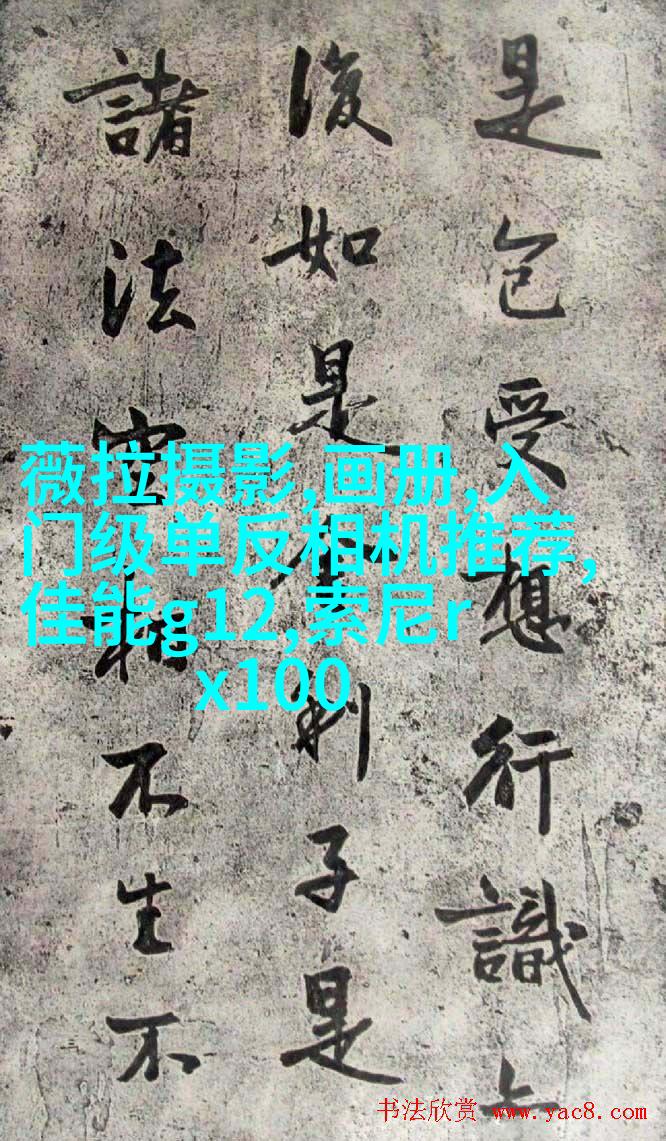 是色受想行識
復如是舍利子是
諸法空相不生不
薇拉摄影,画册,入
门级单反相机推荐,
佳能g12,索尼r
x100
书法欣赏 www.yac8.com